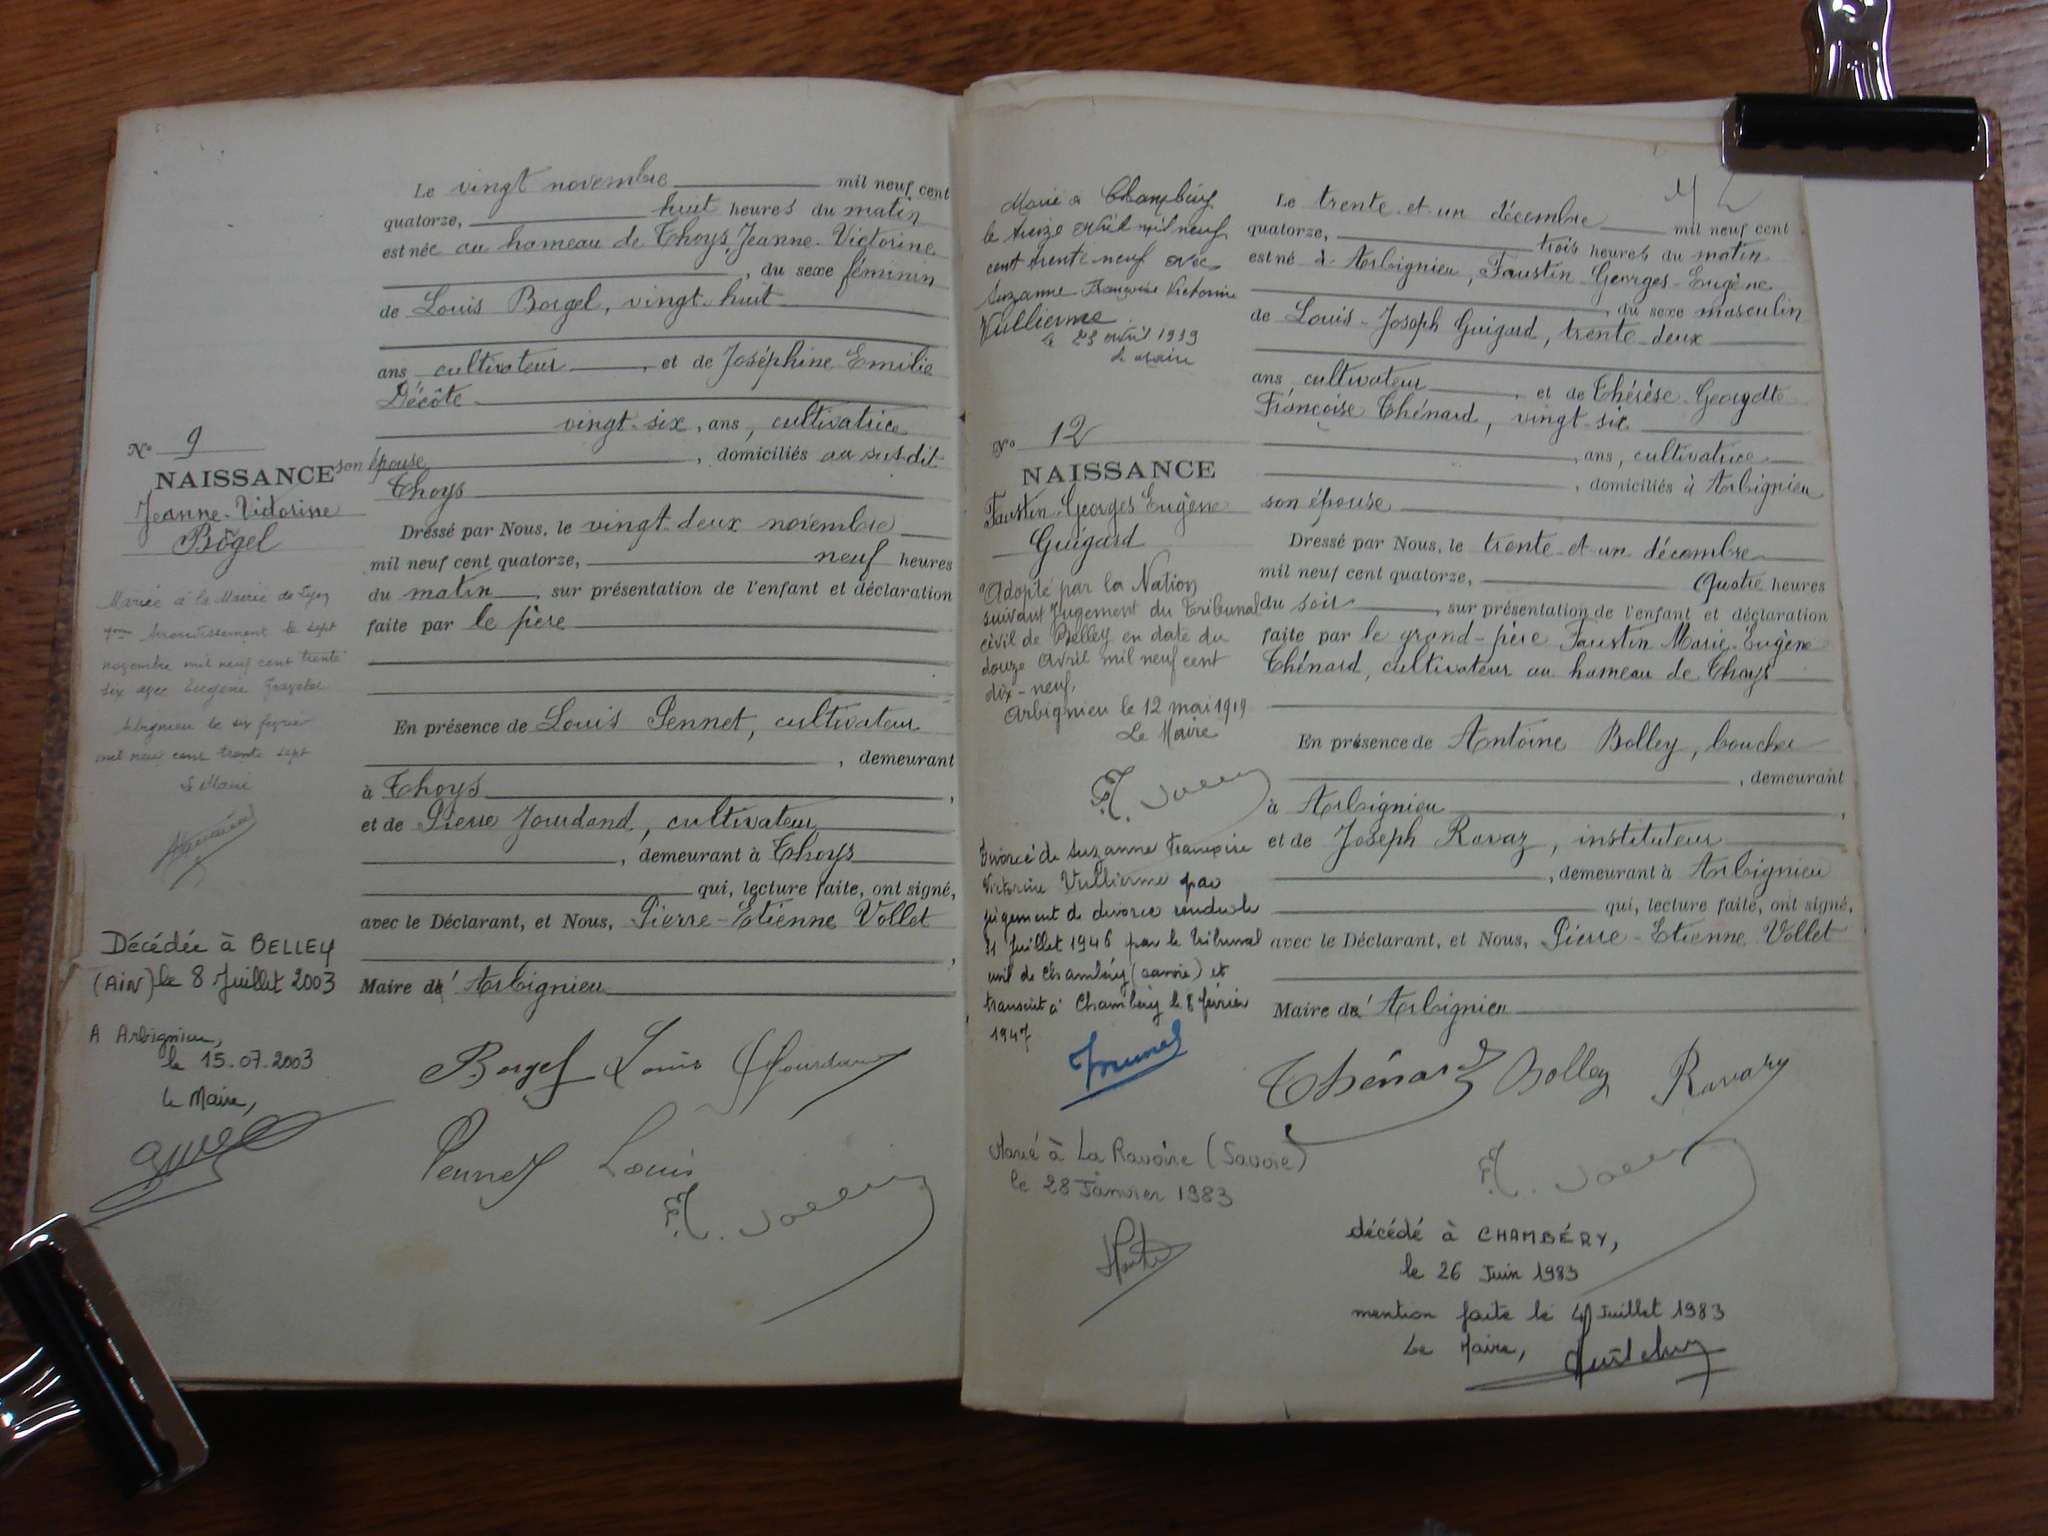 Le vingt novembre mil neuf cent
quatorze, huit heures du matin
est née au hameau de Thoys, Jeanne-Victorine
, du sexe féminin
de Louis Borgel, vingt-huit
ans cultivateur, et de Joséphine Emilie
Décôte
vingt-six, ans, cultivatrice
son épouse, domiciliés au susdit
Thoys
Dressé par Nous, le vingt-deux novembre
mil neuf cent quatorze, neuf heures
du matin, sur présentation de l'enfant et déclaration
faite par le père
En présence de Louis Pennet, cultivateur
, demeurant
à Thoys,
et de Pierre Jourdand, cultivateur
, demeurant à Thoys
qui, lecture faite, ont signé,
avec le Déclarant, et Nous, Pierre-Etienne Vollet
,
Maire d'Arbignieu
Borgel Louis Jourdand
Pennet Louis
N° 9
NAISSANCE
Jeanne-Victorine
Bogel
Mariée à la Mairie de Lyon
arrondissement le sept
novembre mil neuf cent trente
six avec Eugène
Arbignieu le six février
mil neuf cent trente sept
Le Maire
Décédée à BELLEY
(AIN) le 8 Juillet 2003
A Arbignieu,
le 15.07.2003
Le Maire,
Marié à Chambéry
le treize avril mil neuf
cent trente-neuf avec
Suzanne Françoise Victorine
Vullierme
le 23 avril 1939
Le Maire
N° 12
NAISSANCE
Faustin-Georges Eugène
Guigard
"Adopté par la Nation
suivant jugement du Tribunal
civil de Belley en date du
douze Avril mil neuf cent
dix-neuf.
Arbignieu le 12 mai 1919
Le Maire
Divorcé de Suzanne Françoise
Victorine Vullierme par
jugement de divorce rendu le
Juillet 1946 par le Tribunal
civil de Chambéry (Savoie) et
transcrit à Chambéry le 8 février
1947
Marié à La Ravoire (Savoie)
le 28 Janvier 1983
Le trente-et-un décembre mil neuf cent
quatorze, trois heures du matin
est né à Arbignieu, Faustin Georges-Eugène
, du sexe masculin
de Louis-Joseph Guigard, trente-deux
ans cultivateur, et de Thérèse-Georgette
Françoise Thénard, vingt-six
, ans, cultivatrice
, domiciliés à Arbignieu
son épouse
Dressé par Nous, le trente-et-un décembre
mil neuf cent quatorze, quatre heures
du soir, sur présentation de l'enfant et déclaration
faite par le grand-père Faustin Marie-Eugène
Thénard, cultivateur au hameau de Thoys
En présence de Antoine Bolley, boucher
, demeurant
à Arbignieu,
et de Joseph Ravaz, instituteur
, demeurant à Arbignieu
qui, lecture faite, ont signé,
avec le Déclarant, et Nous, Pierre-Etienne Vollet
Maire d'Arbignieu
Thénard Bolley Ravaz
décédé à CHAMBÉRY,
le 26 Juin 1983
mention faite le 4 Juillet 1983
Le Maire,